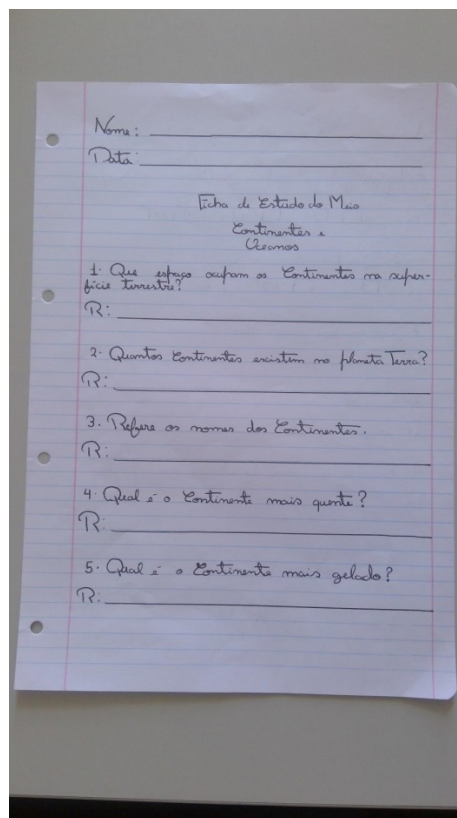 Nome: ____________
Data: ____________
Ficha de Estudo do Meio
Continentes e
Oceanos
1. Que espaço ocupam os Continentes na super-
fície terrestre?
R: ____________
2. Quantos Continentes existem no planeta Terra?
R: ____________
3. Refere os nomes dos Continentes.
R: ____________
4. Qual é o Continente mais quente?
R: ____________
5. Qual é o Continente mais gelado?
R: ____________